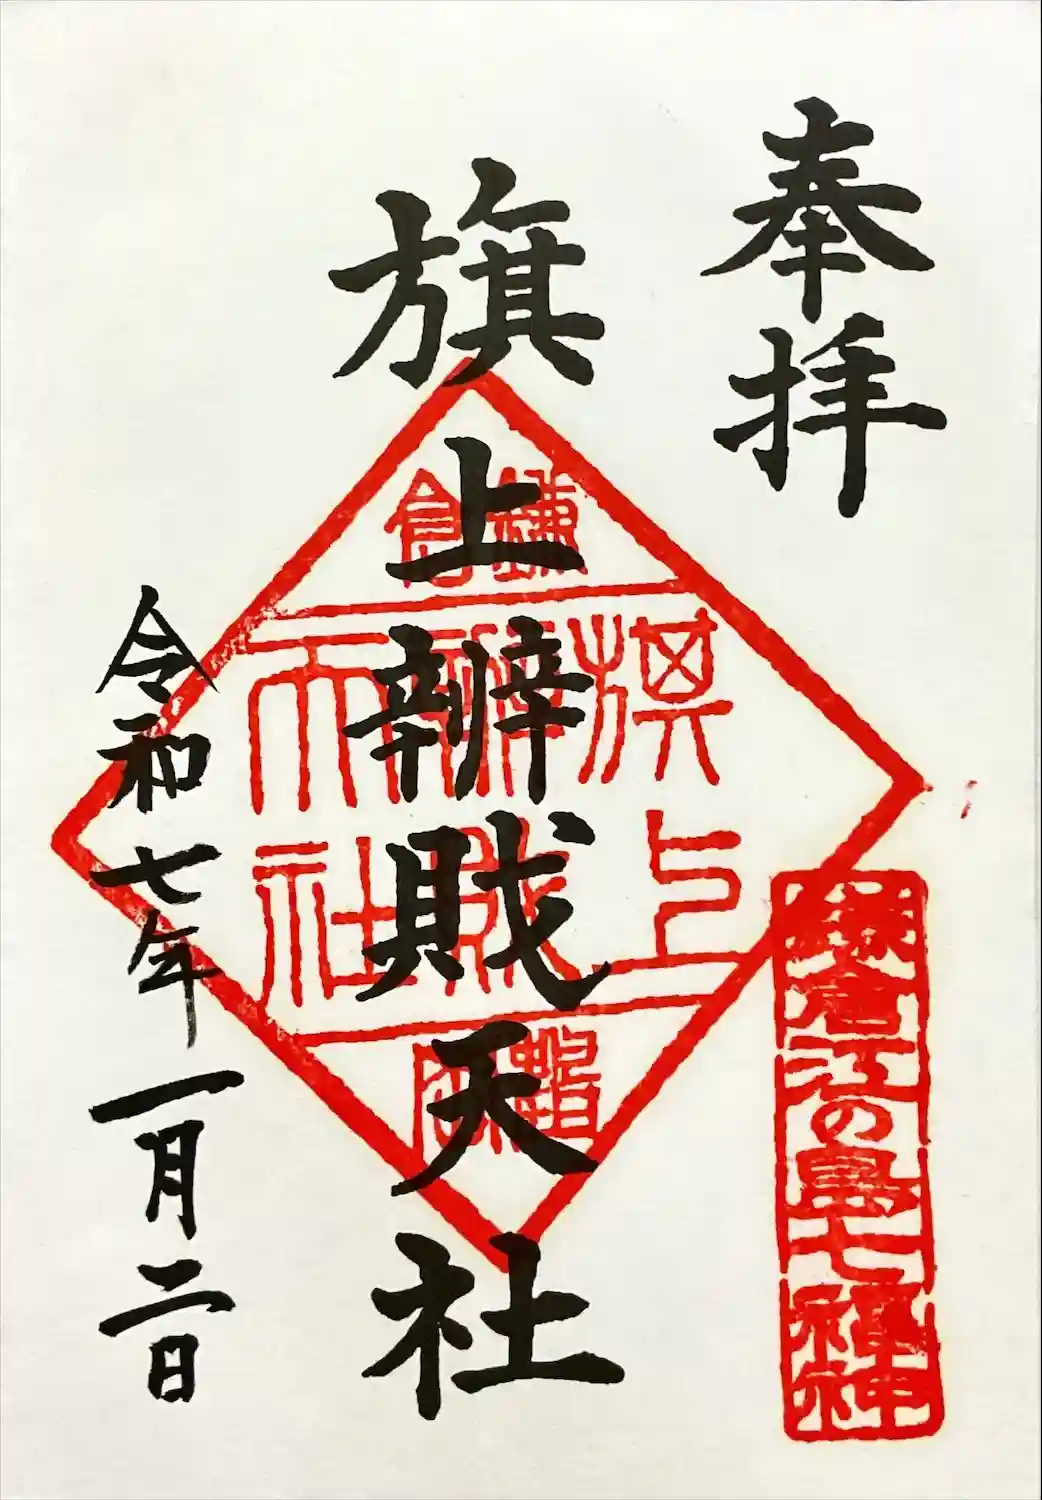 奉拝
鎌倉江の島七福神
旗上辨財天社
鎌倉
旗上
辨財
天社
令和七年一月二日